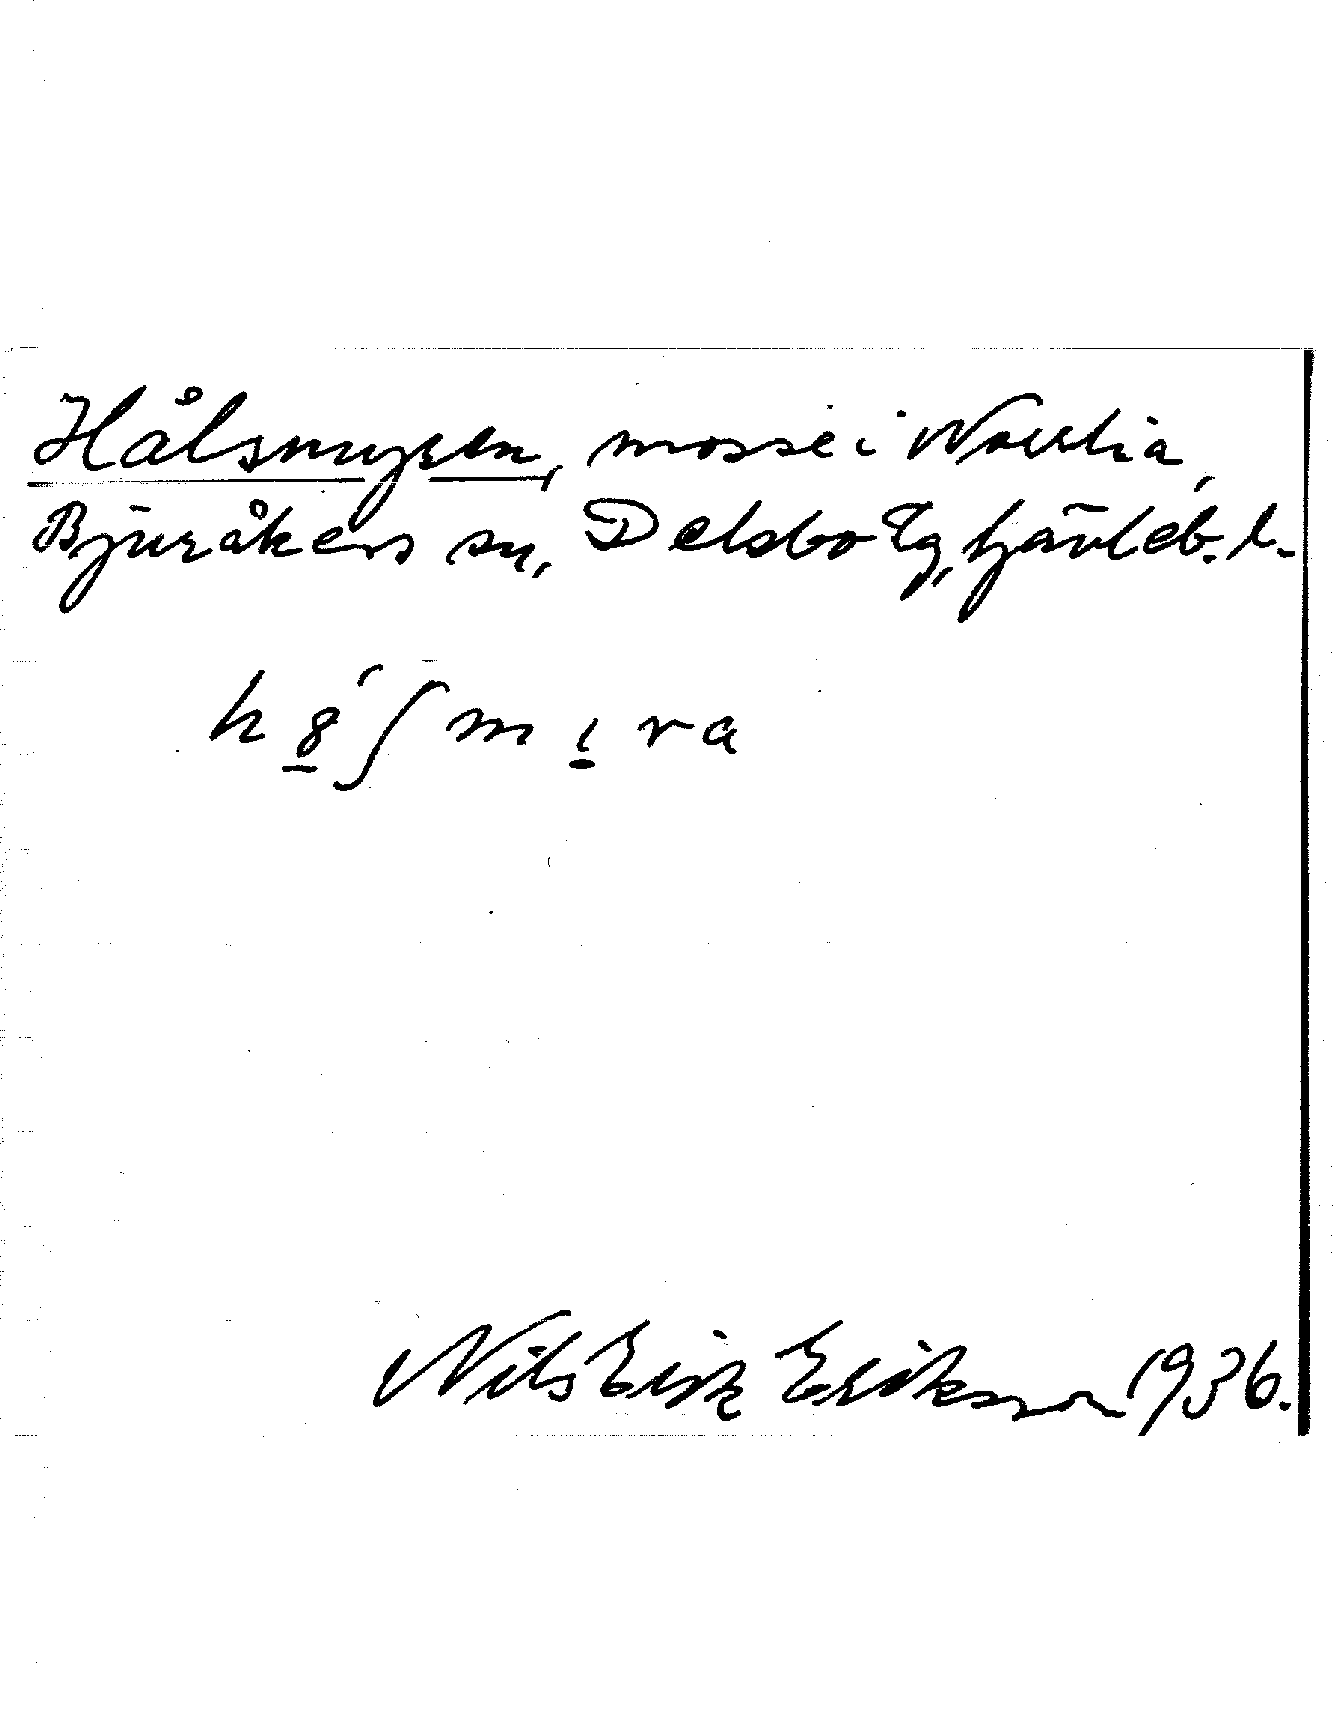 Hålsmyren, mosse i Norrlia,
Bjuråkers sn, Delsbo tg, Gävleb. l.
Nils Erik Eriksson 1936.